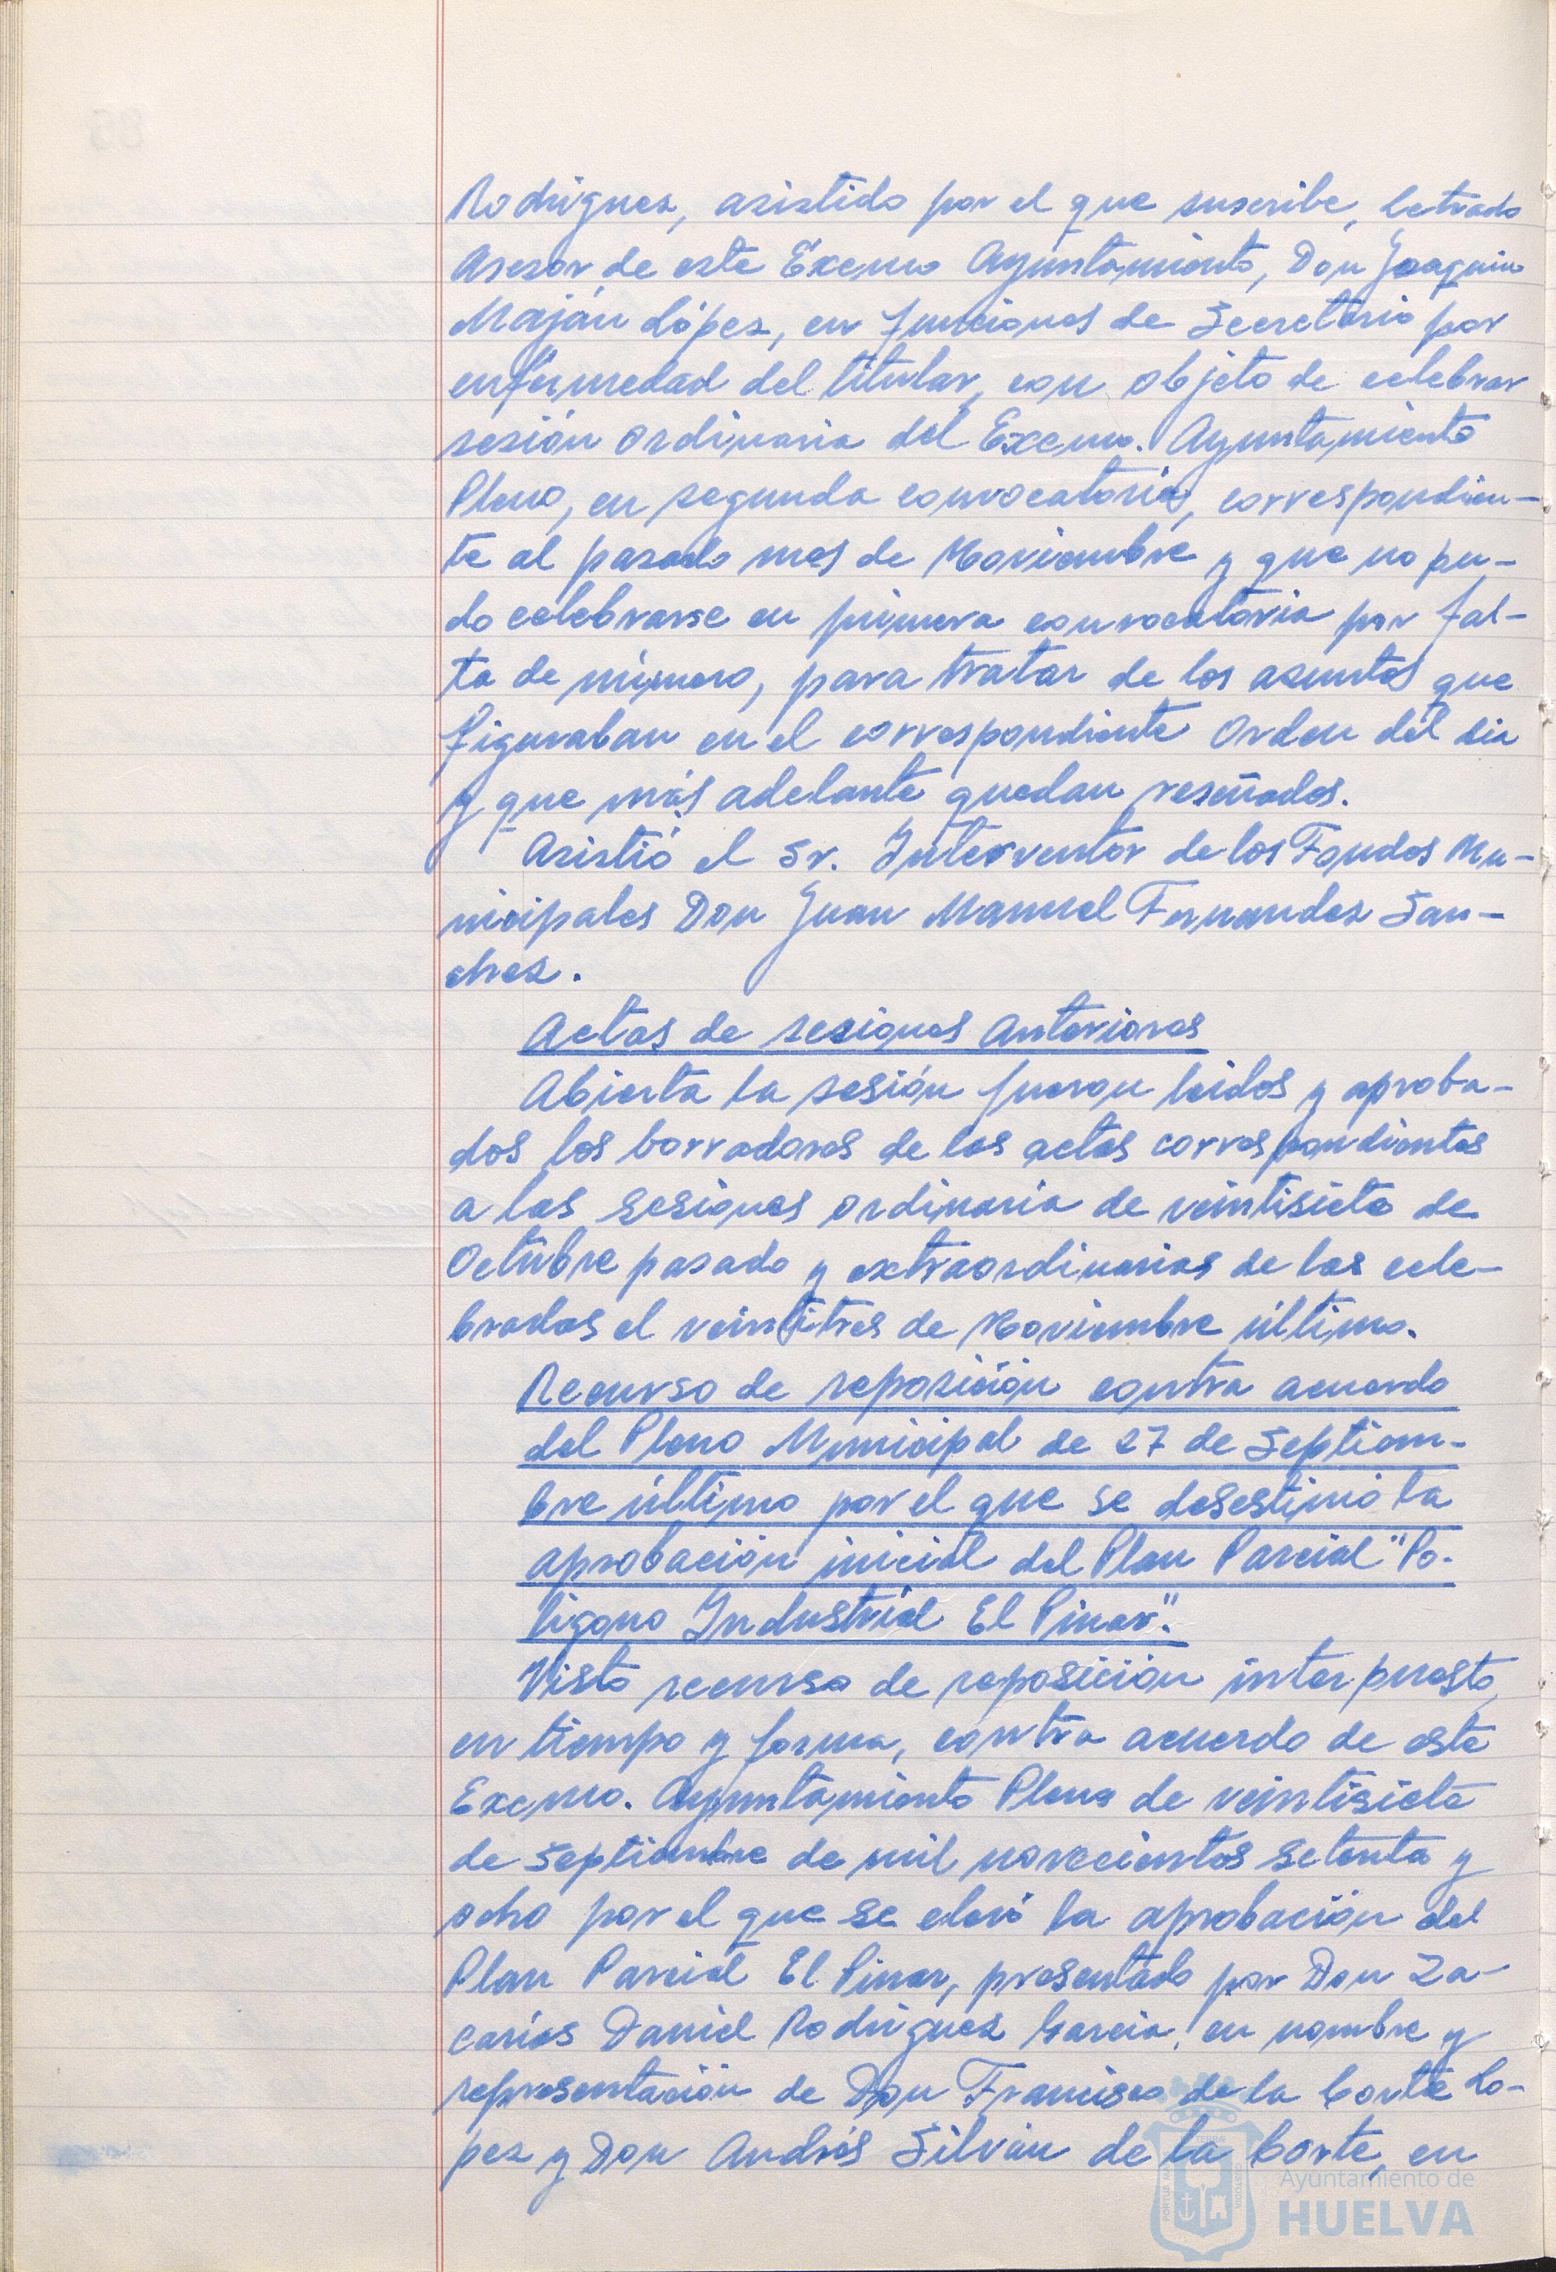 Rodriguez, asistido por el que suscribe, letrado
Asesor de este Excmo Ayuntamiento, Don Joaquin
Maján López, en funciones de Secretario por
enfermedad del titular, con objeto de celebrar
sesión Ordinaria del Excmo. Ayuntamiento
Pleno, en segunda convocatoria, correspondien-
te al pasado mes de Noviembre y que no pu-
do celebrarse en primera convocatoria por fal-
ta de número, para tratar de los asuntos que
figuraban en el correspondiente Orden del dia
y que más adelante quedan reseñados.
Asistió el Sr. Interventor de los Fondos Mu-
nicipales Don Juan Manuel Fernandez San-
chez.
Actas de sesiones anteriores
Abierta la sesión fueron leidos y aproba-
dos los borradores de las actas correspondientes
a las sesiones ordinaria de veintisiete de
Octubre pasado y extraordinarias de las cele-
bradas el veintitres de Noviembre último.
Recurso de reposición contra acuerdo
del Pleno Municipal de 27 de Septiem-
bre último por el que se desestimó la
aprobación inicial del Plan Parcial "Po-
ligono Industrial El Pinar".
Visto recurso de reposición interpuesto,
en tiempo y forma, contra acuerdo de este
Excmo. Ayuntamiento Pleno de veintisiete
de Septiembre de mil novecientos setenta y
ocho por el que se elevó la aprobación del
Plan Parcial El Pinar, presentado por Don Za-
carias Daniel Rodriguez Garcia, en nombre y
representación de Don Francisco de la Corte Lo-
pez y Don Andrés Silván de la Corte, en
Ayuntamiento de
HUELVA